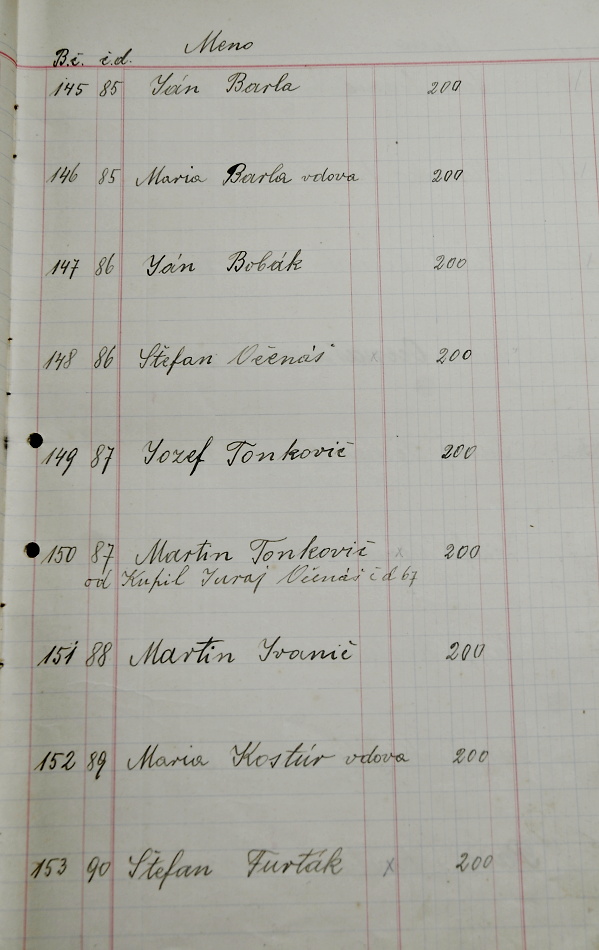 B.č. č.d. Meno
145 85 Ján Barla 200
146 85 Maria Barla vdova 200
147 86 Ján Bobák 200
148 86 Štefan Očenáš 200
149 87 Jozef Tonkovič 200
150 87 Martin Tonkovič x 200
od Kupil Juraj Očenáš č d 67
151 88 Martin Ivanič 200
152 89 Maria Kostúr vdova 200
153 90 Štefan Furták x 200